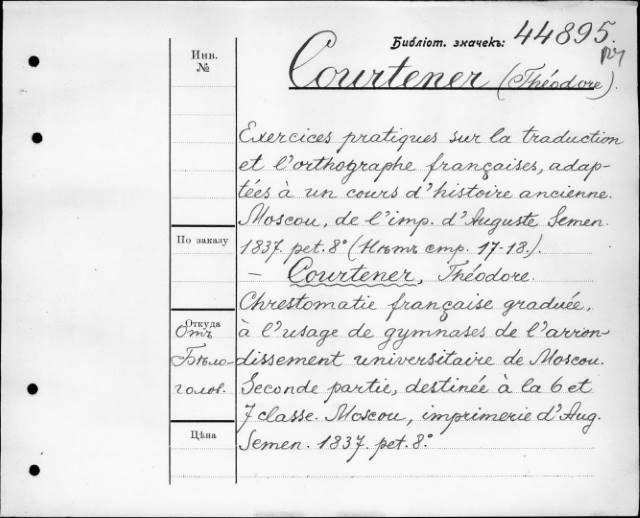 Библіот. значекъ: 44895.
Инв.
№
Courtener (Théodore).
Exercices pratiques sur la traduction
et l'orthographe françaises, adap-
tées à un cours d'histoire ancienne.
Moscou, de l'imp. d'Auguste Semen.
По заказу
1837. pet. 8° (Нѣтъ стр. 17-18.).
— Courtener, Théodore.
Chrestomatie française graduée,
Откуда
Отъ
à l'usage de gymnases de l'arron-
Бѣло-
dissement universitaire de Moscou.
голов.
Seconde partie, destinée à la 6 et
7 classe. Moscou, imprimerie d'Aug.
Цѣна
Semen. 1837. pet. 8°.